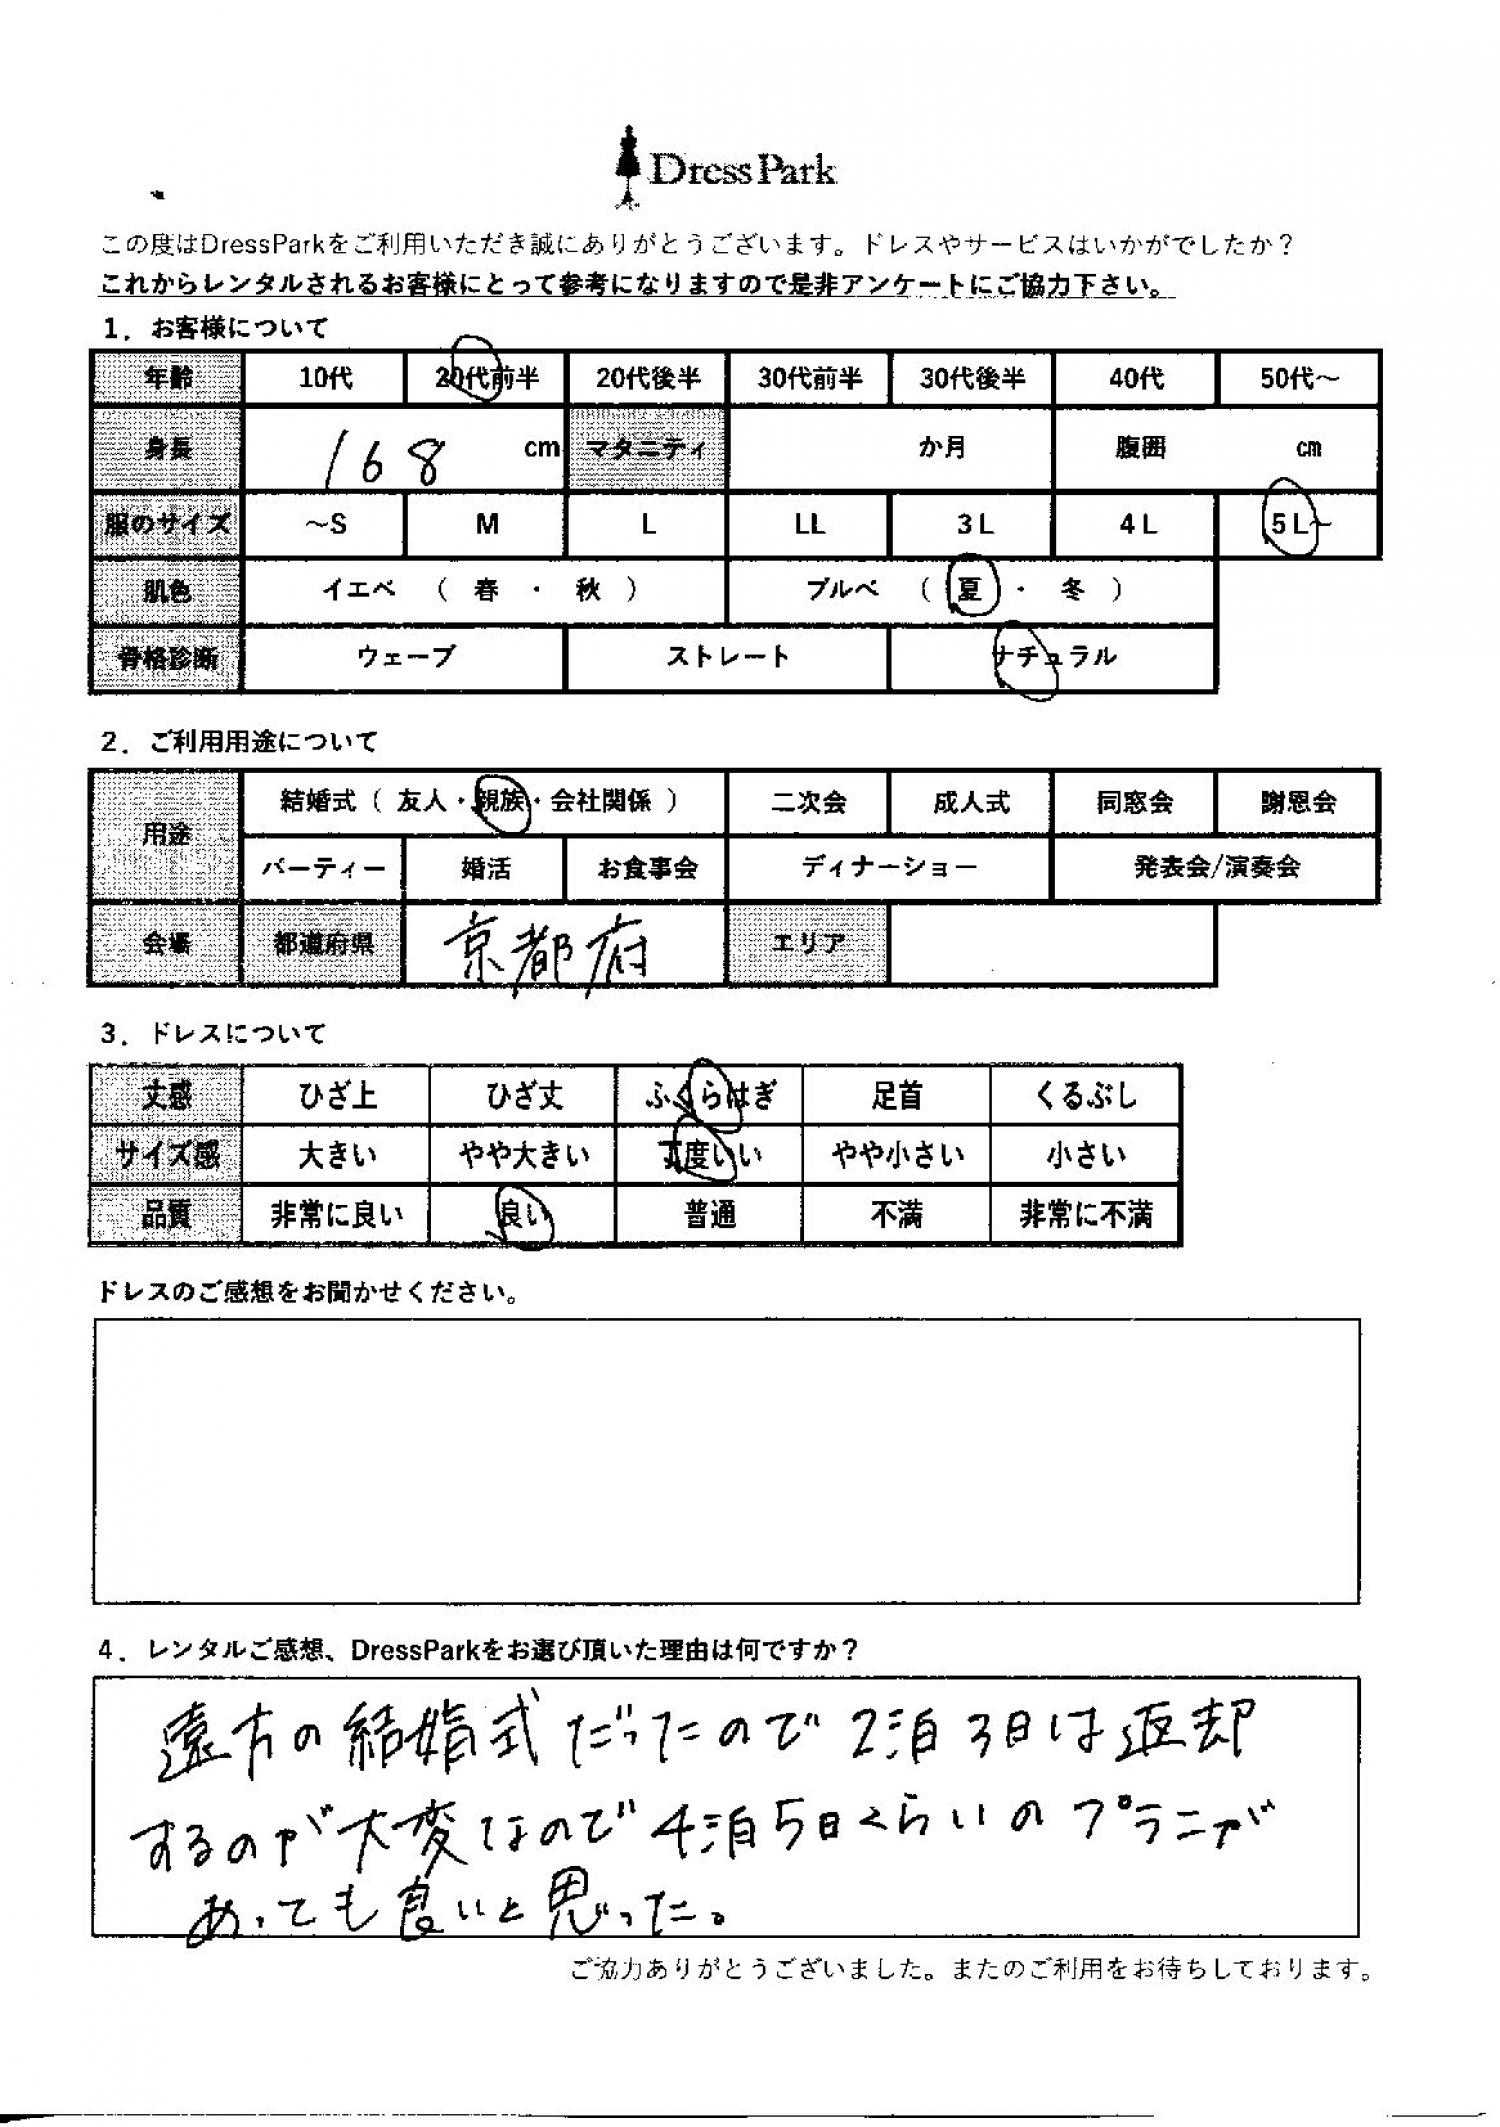 DressPark
この度はDressParkをご利用いただき誠にありがとうございます。ドレスやサービスはいかがでしたか？
これからレンタルされるお客様にとって参考になりますので是非アンケートにご協力下さい。
1．お客様について
年齢 10代 20代前半 20代後半 30代前半 30代後半 40代 50代～
身長 168 cm マタニティ か月 腹囲 cm
服のサイズ ～S M L LL 3L 4L 5L～
肌色 イエベ （ 春 ・ 秋 ） ブルベ （ 夏 ・ 冬 ）
骨格診断 ウェーブ ストレート ナチュラル
2．ご利用用途について
用途 結婚式（ 友人・親族・会社関係 ） 二次会 成人式 同窓会 謝恩会
パーティー 婚活 お食事会 ディナーショー 発表会/演奏会
会場 都道府県 京都府 エリア
3．ドレスについて
丈感 ひざ上 ひざ丈 ふくらはぎ 足首 くるぶし
サイズ感 大きい やや大きい 丁度いい やや小さい 小さい
品質 非常に良い 良い 普通 不満 非常に不満
ドレスのご感想をお聞かせください。
4．レンタルご感想、DressParkをお選び頂いた理由は何ですか？
遠方の結婚式だったので2泊3日は返却
するのが大変なので4泊5日くらいのプランが
あっても良いと思った。
ご協力ありがとうございました。またのご利用をお待ちしております。